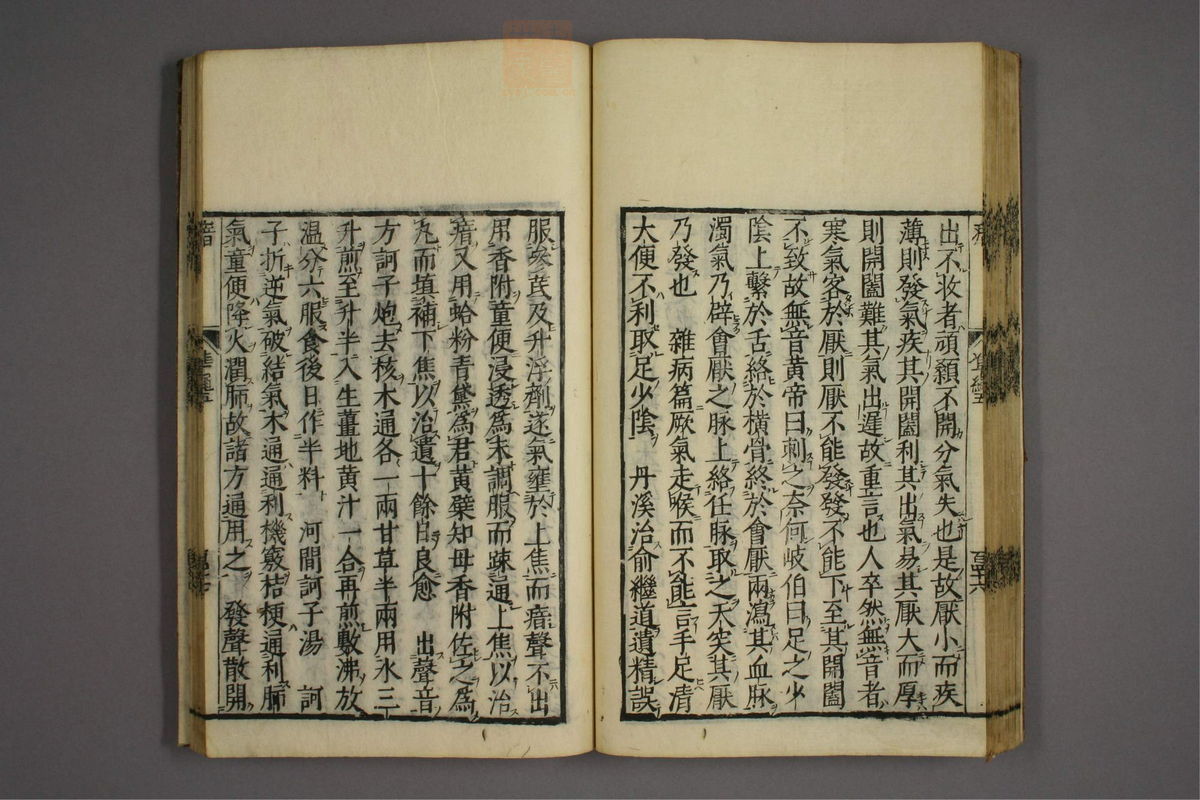 出不收者頏顙不開分氣失也是故厭小而疾
薄則發氣疾其開闔利其出氣易其厭大而厚
則開闔難其氣出遲故重言也人卒然無音者
寒氣客於厭則厭不能發發不能下至其開闔
不致故無音黃帝曰刺之奈何岐伯曰足之少
陰上繫於舌絡於橫骨終於會厭兩瀉其血脉
濁氣乃辟會厭之脉上絡任脉取之天突其厭
乃發也　雜病篇厥氣走喉而不能言手足清
大便不利取足少陰　丹溪治俞繼道遺精誤
服參芪及升浮劑遂氣壅於上焦而瘖聲不出
用香附童便浸透為末調服而踈通上焦以治
瘖又用蛤粉青黛為君黃蘗知母香附佐之為
丸而填補下焦以治遺十餘日良愈　出聲音
方訶子炮去核木通各一兩甘草半兩用水三
升煎至升半入生薑地黄汁一合再煎數沸放
温分六服食後日作半料　河間訶子湯　訶
子折逆氣破結氣木通通利機竅桔梗通利肺
氣童便降火潤肺故諸方通用之　發聲散開